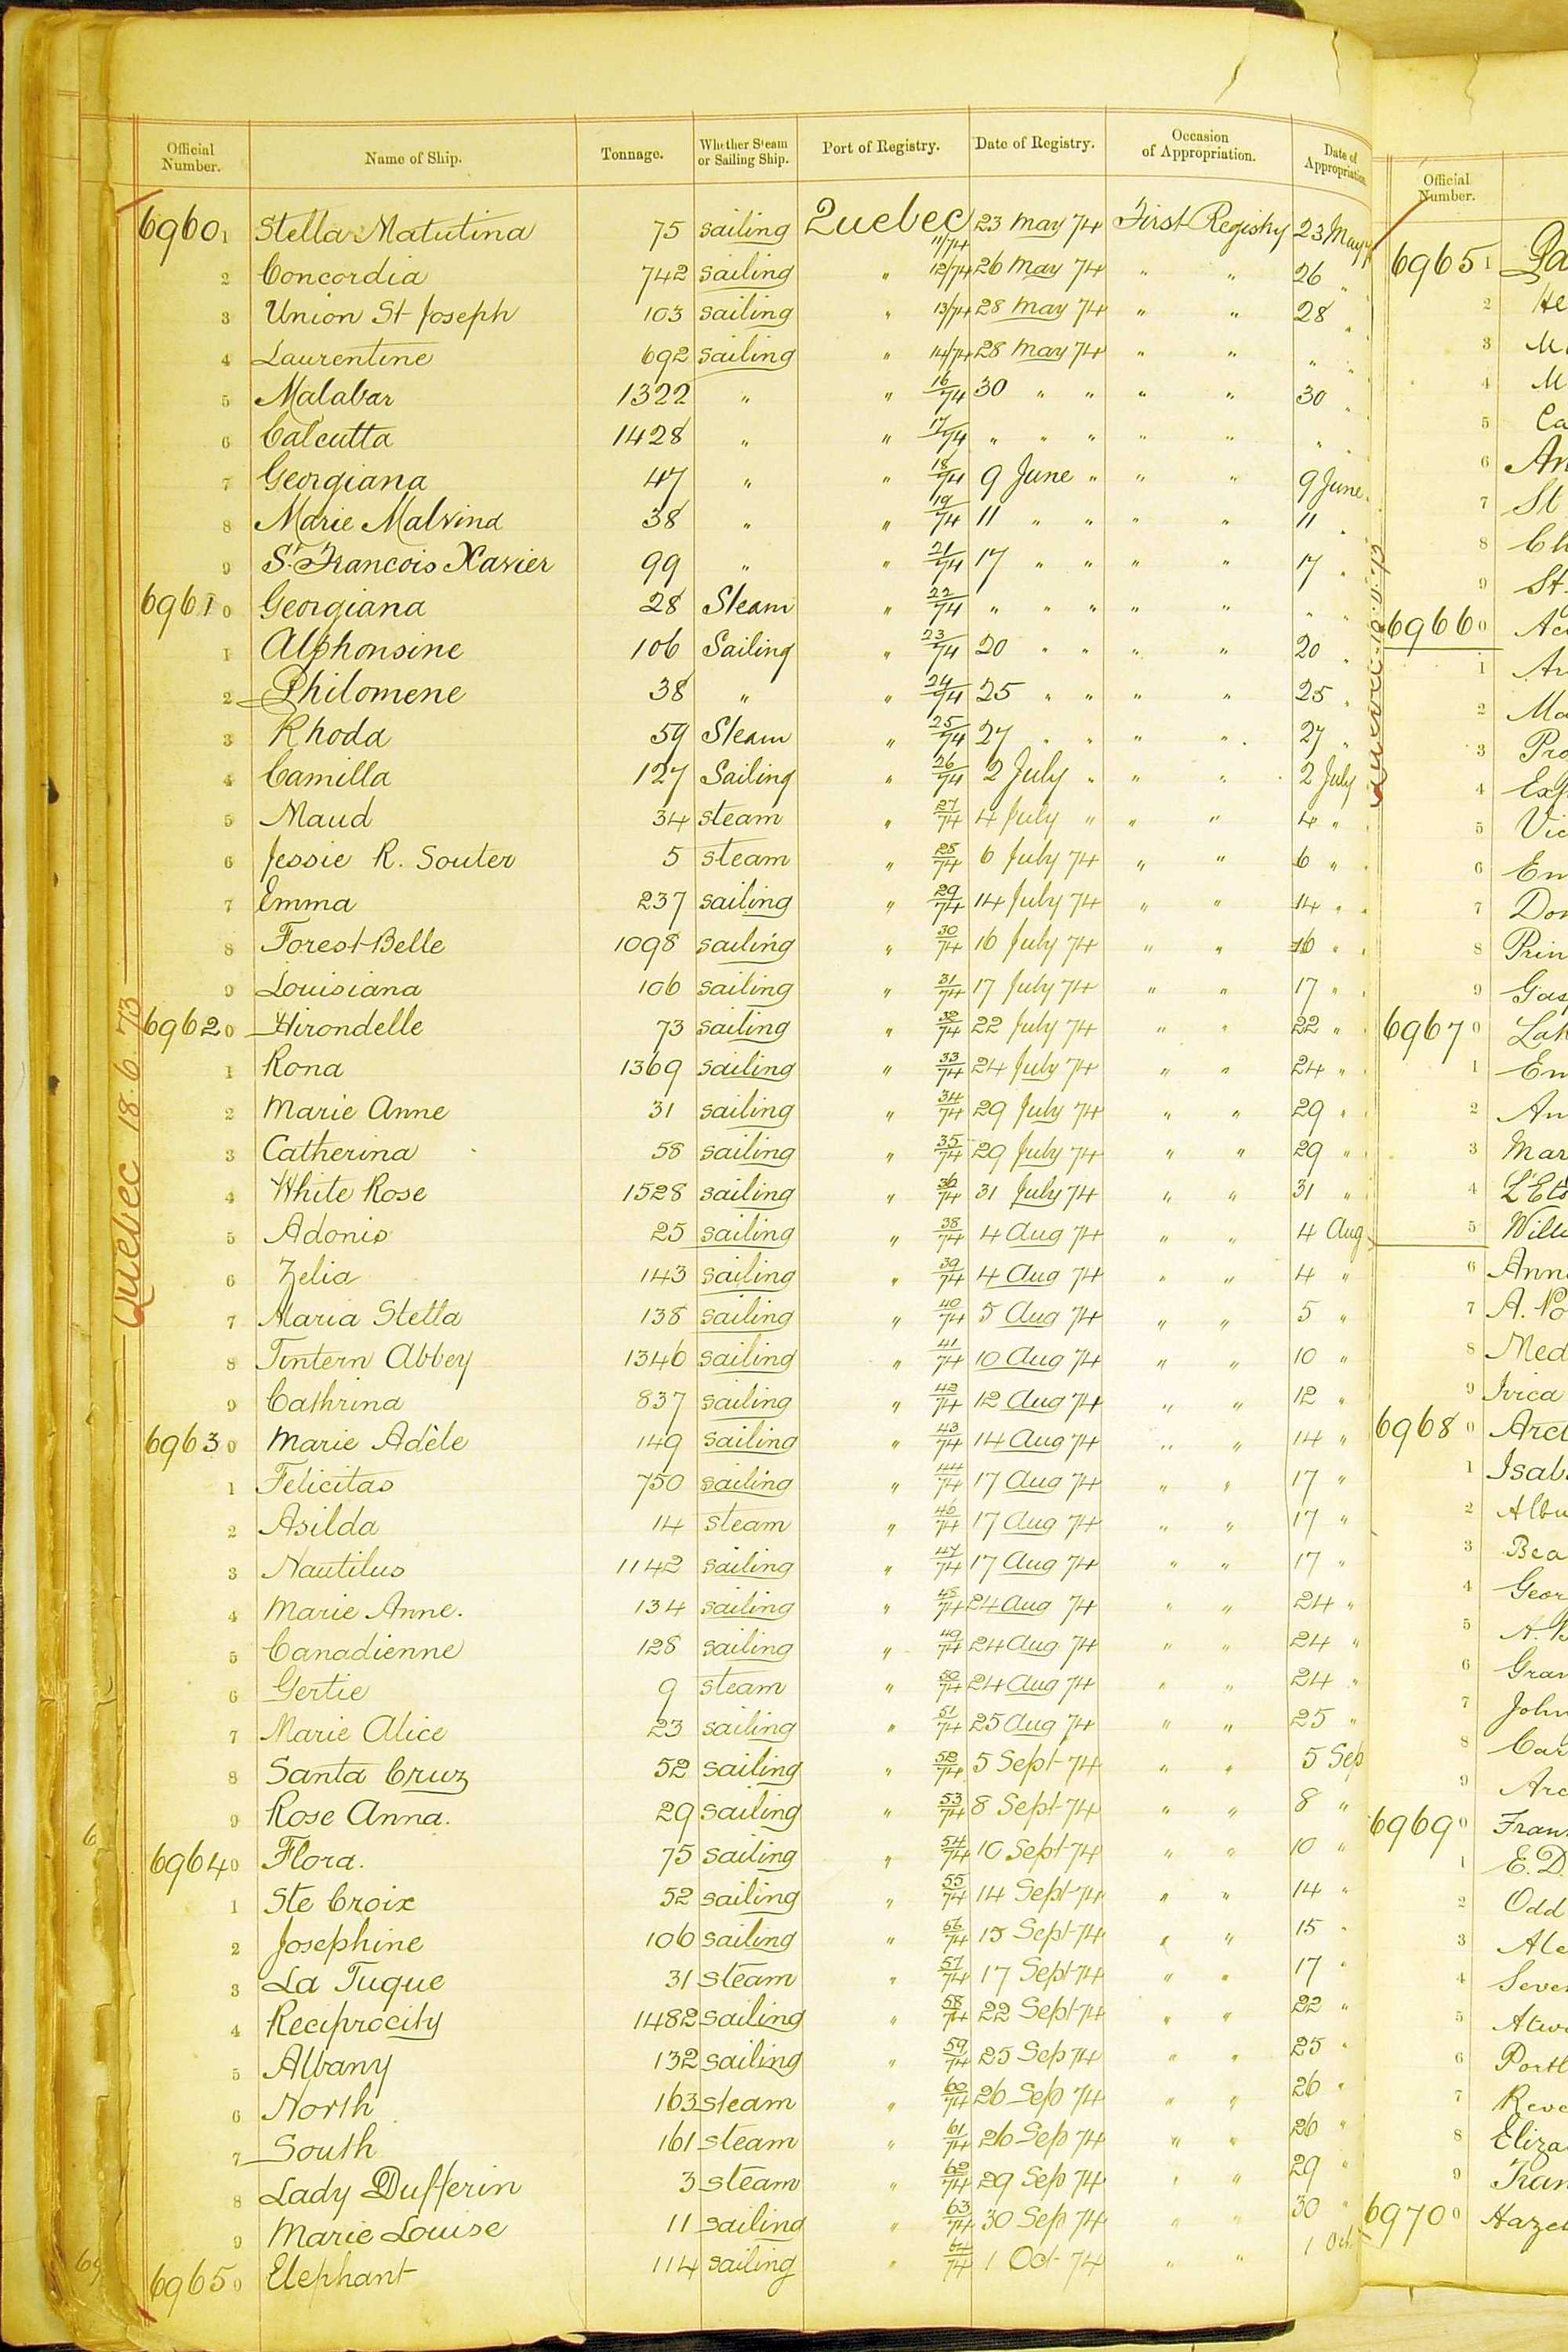 Official Number. Name of Ship. Tonnage. Whether Steam or Sailing Ship. Port of Registry. Date of Registry. Occasion of Appropriation. Date of Appropriation.
69601 Stella Matutina 75 sailing Quebec 11/74 23 May 74 First Registry 23 May
2 Concordia 742 sailing " 12/74 26 May 74 " " 26 "
3 Union St Joseph 103 sailing " 13/74 28 May 74 " " 28 "
4 Laurentine 692 sailing " 14/74 28 May 74 " " " "
5 Malabar 1322 " " 16/74 30 " " " " 30 "
6 Calcutta 1428 " " 17/74 " " " " " "
7 Georgiana 47 " " 18/74 9 June " " " 9 June
8 Marie Malvina 38 " " 19/74 11 " " " " 11 "
9 St. Francois Xavier 99 " " 21/74 17 " " " " 17 "
69610 Georgiana 28 Steam " 22/74 " " " " " " "
1 Alphonsine 106 Sailing " 23/74 20 " " " " 20 "
2 Philomene 38 " " 24/74 25 " " " " 25 "
3 Rhoda 59 Steam " 25/74 27 " " " " 27 "
4 Camilla 127 Sailing " 26/74 2 July " " " 2 July
5 Maud 34 steam " 27/74 4 July " " " 4 "
6 Jessie R. Souter 5 steam " 28/74 6 July 74 " " 6 "
7 Emma 237 sailing " 29/74 14 July 74 " " 14 "
8 Forest Belle 1098 sailing " 30/74 16 July 74 " " 16 "
9 Louisiana 106 sailing " 31/74 17 July 74 " " 17 "
69620 Hirondelle 73 sailing " 32/74 22 July 74 " " 22 "
1 Rona 1369 sailing " 33/74 24 July 74 " " 24 "
2 Marie Anne 31 sailing " 34/74 29 July 74 " " 29 "
3 Catherina 58 sailing " 35/74 29 July 74 " " 29 "
4 White Rose 1528 sailing " 36/74 31 July 74 " " 31 "
5 Adonis 25 sailing " 38/74 4 Aug 74 " " 4 Aug
6 Zelia 143 sailing " 39/74 4 Aug 74 " " 4 "
7 Maria Stella 138 sailing " 40/74 5 Aug 74 " " 5 "
8 Tintern Abbey 1346 sailing " 41/74 10 Aug 74 " " 10 "
9 Cathrina 837 sailing " 42/74 12 Aug 74 " " 12 "
69630 Marie Adèle 149 sailing " 43/74 14 Aug 74 " " 14 "
1 Felicitas 750 sailing " 44/74 17 Aug 74 " " 17 "
2 Asilda 14 steam " 46/74 17 Aug 74 " " 17 "
3 Nautilus 1142 sailing " 47/74 17 Aug 74 " " 17 "
4 Marie Anne. 134 sailing " 48/74 24 Aug 74 " " 24 "
5 Canadienne 128 sailing " 49/74 24 Aug 74 " " 24 "
6 Gertie 9 steam " 50/74 24 Aug 74 " " 24 "
7 Marie Alice 23 sailing " 51/74 25 Aug 74 " " 25 "
8 Santa Cruz 52 sailing " 52/74 5 Sept 74 " " 5 Sep
9 Rose Anna. 29 sailing " 53/74 8 Sept 74 " " 8 "
69640 Flora. 75 sailing " 54/74 10 Sept 74 " " 10 "
1 Ste Croix 52 sailing " 55/74 14 Sept 74 " " 14 "
2 Josephine 106 sailing " 56/74 15 Sept 74 " " 15 "
3 La Tuque 31 steam " 57/74 17 Sept 74 " " 17 "
4 Reciprocity 1482 sailing " 58/74 22 Sept 74 " " 22 "
5 Albany 132 sailing " 59/74 25 Sep 74 " " 25 "
6 North 163 steam " 60/74 26 Sep 74 " " 26 "
7 South 161 steam " 61/74 26 Sep 74 " " 26 "
8 Lady Dufferin 3 steam " 62/74 29 Sep 74 " " 29 "
9 Marie Louise 11 sailing " 63/74 30 Sep 74 " " 30 "
69650 Elephant 114 sailing " 64/74 1 Oct 74 " " 1 Oct
Quebec 18.6.73
Official Number.
69651
2 He
3
4 M
5 Ca
6 An
7 St
8 Ch
9 St.
69660 Ac
1
2 Ma
3 Pro
4 Exp
5 Vic
6 Em
7 Dom
8 Prin
9 Gasp
69670 Lak
1 Em
2 An
3 Mar
4 L'Eto
5 Will
6 Ann
7 A. No
8 Med
9 Ivica
69680 Arct
1 Isab
2 Albu
3 Bea
4 Geor
5
6 Gran
7 John
8 Car
9 Arc
69690 Fran
1 E. D
2 Odd
3 Ale
4 Seve
5
6 Portl
7 Reve
8 Eliza
9 Fran
69700 Hazel